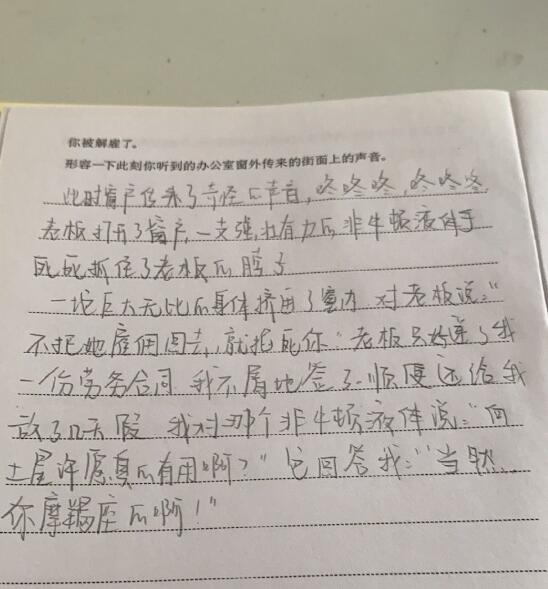 你被解雇了。
形容一下此刻你听到的办公室窗外传来的街面上的声音。
此时窗户传来了奇怪的声音,咚咚咚,咚咚咚,
老板打开了窗户,一支强壮有力的非牛顿液体手
死死抓住了老板的脖子
一坨巨大无比的身体挤进了室内 对老板说:“
不把她雇佣回去,就掐死你”老板只好递了我
一份劳务合同 我不屑地签了.顺便还给我
放了几天假 我对那个非牛顿液体说:“向
土星许愿真的有用啊?”它回答我:“当然.
你摩羯座的啊!”